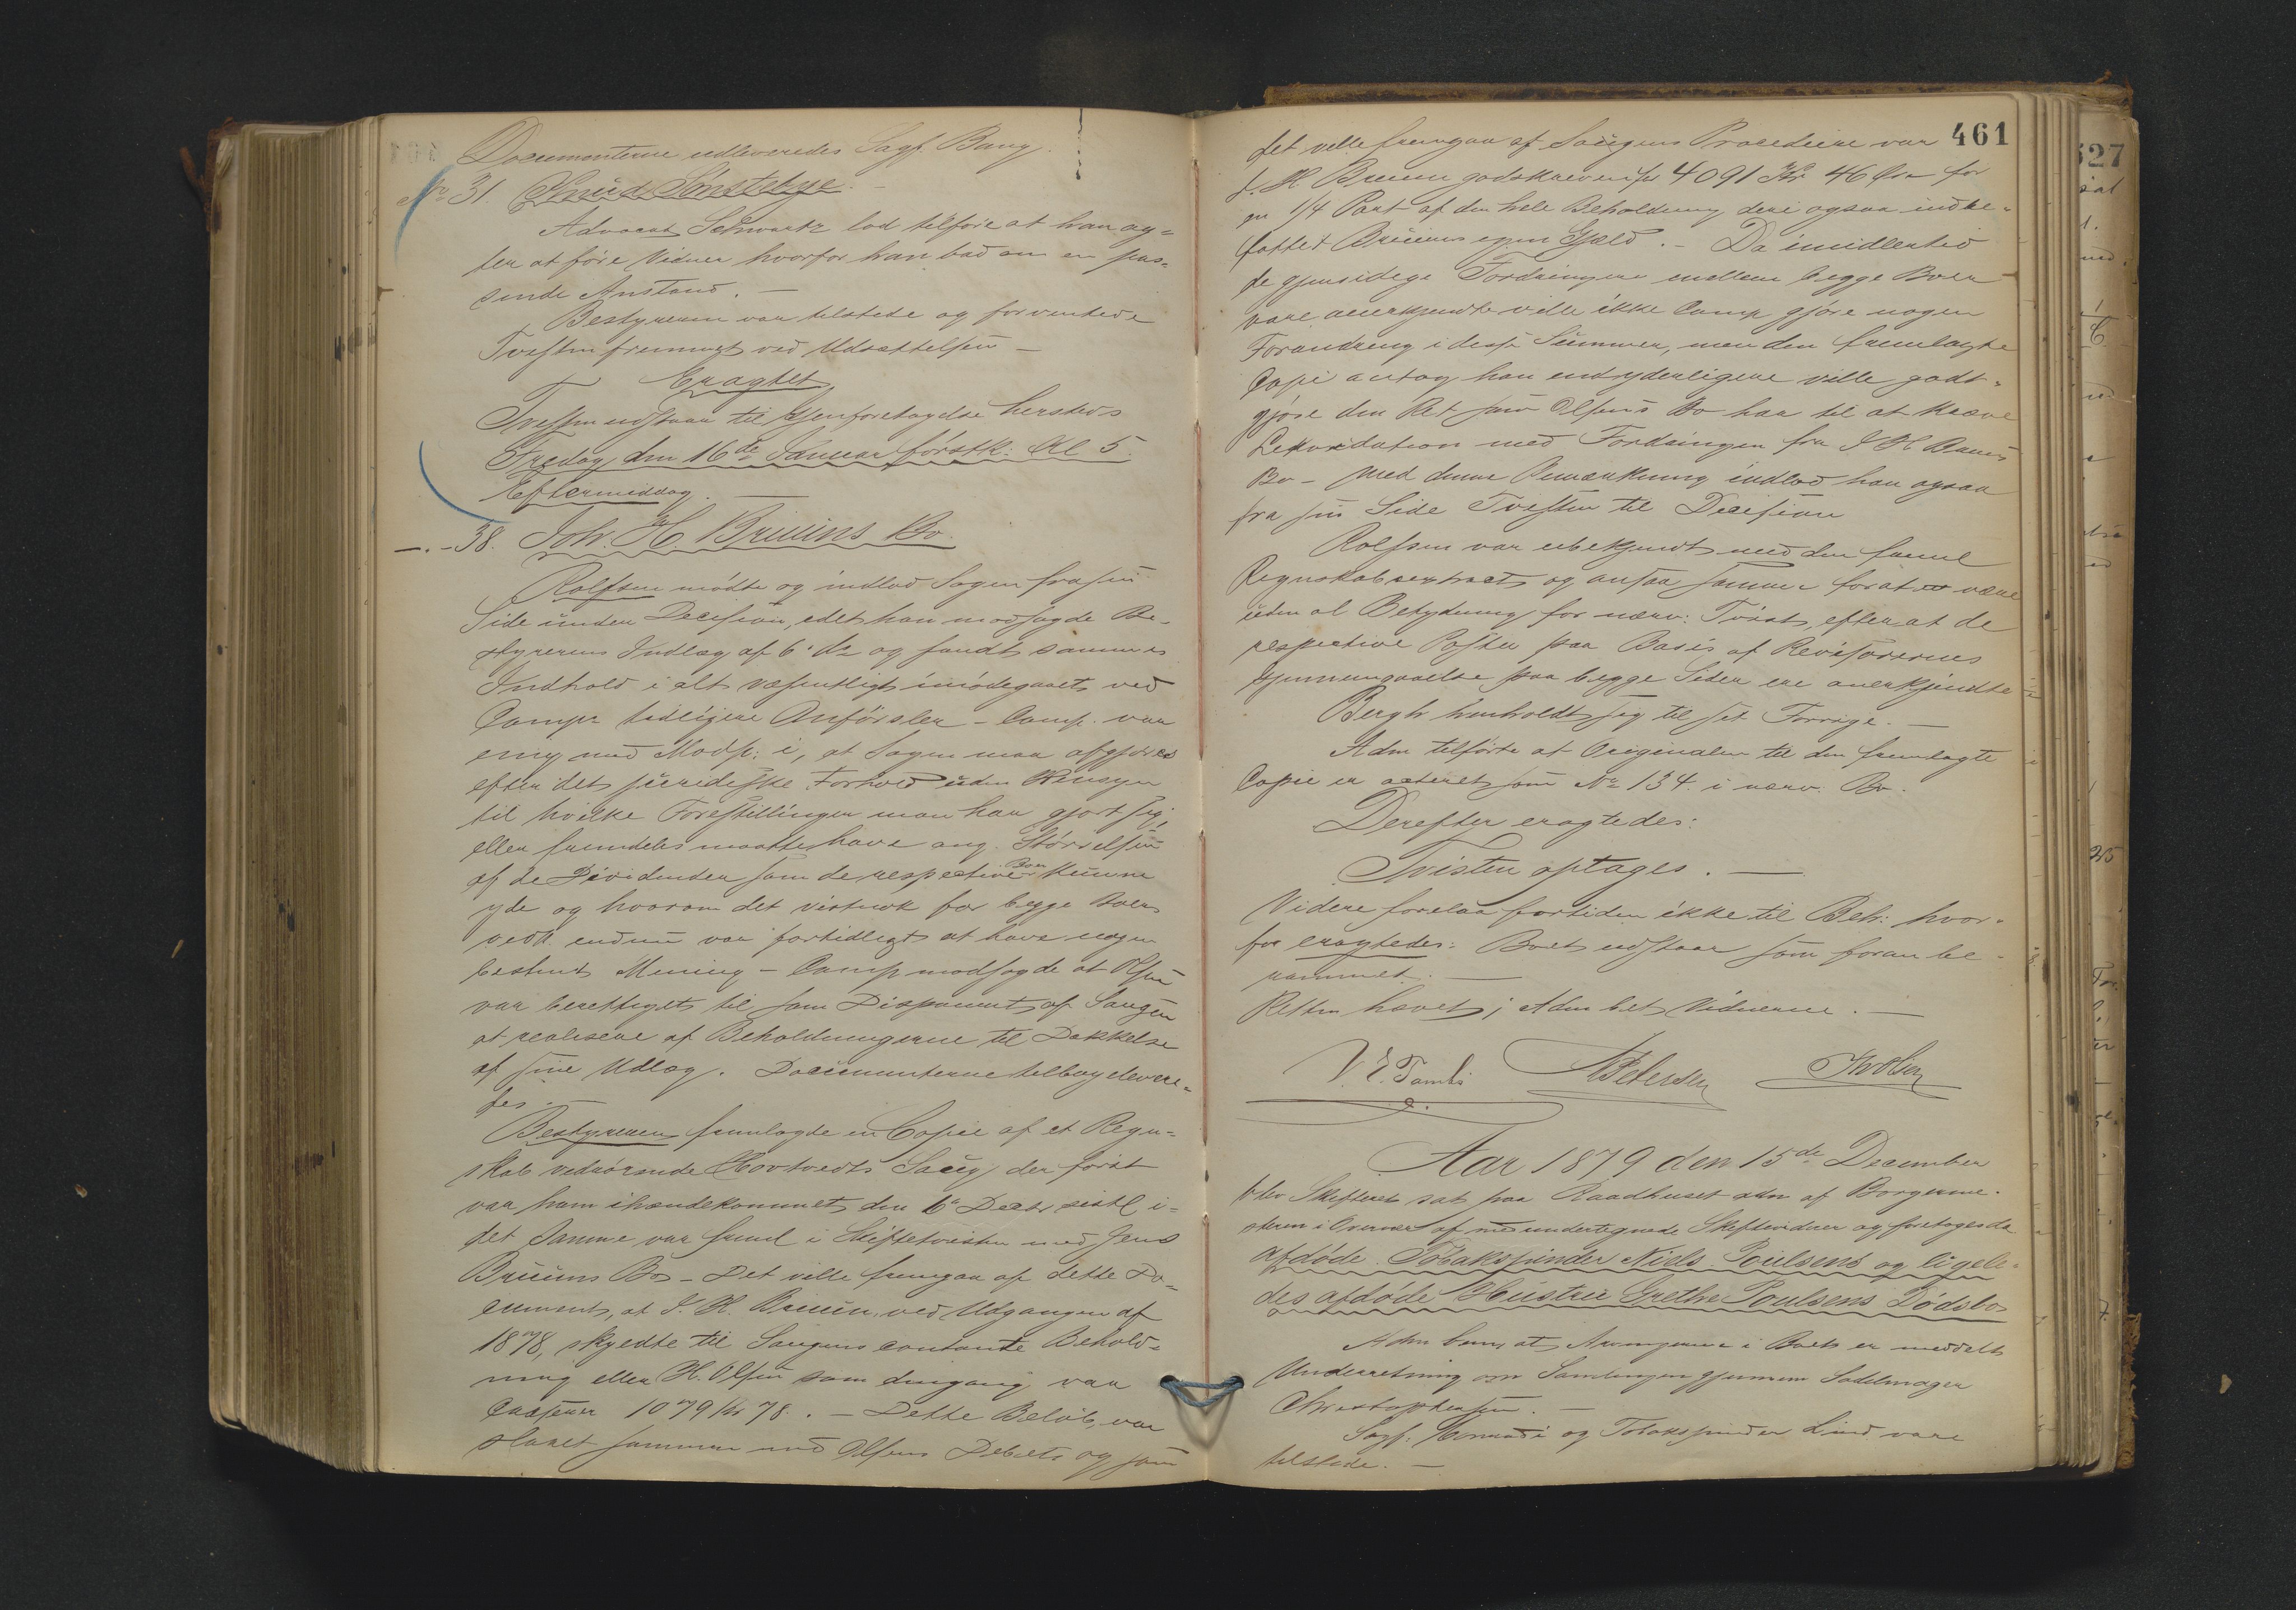 Documenterne udleveredes Sagf. Bang.
No 31 Knud Sønstebye.
Advocat Schwartz lod tilføre at han ag-
ter at føre Vidner hvorfor han bad om en pas-
sende Anstand. —
Bestyreren var tilstede og forventede
Tvisten fremmet ved Udsættelsen —
Eragtet
Tvisten udstaar til Gjenforetagelse hersteds
Fredag den 16de Januar førstk: Kl 5
Eftermiddag. —
— . - 38. Joh. H. Bruuns Bo.
Rolfsen mødte og indlod Sagen fra sin
Side under Decision, idet han modsagde Be-
styrerens Indlæg af 6' ds og fandt sammes
Indhold i alt væsentligt imødegaaet ved
Comps tidligere Anførsler - Comp. var
enig med Modp: i, at Sagen maa afgjøres
efter det juridiske Forhold uden Hensyn
til hvilke Forestillinger man har gjort sig,
eller fremdeles maatte have ang. Størrelsen
af de Dividender som de respective Boer kunne
yde og hvorom det vistnok for begge Boers
vedk. endnu var fortidligt at have nogen
bestemt Mening - Comp modsagde at Olsen
var berettiget til som Disponent af Saugen
at realisere af Beholdningerne til Dækkelse
af sine Udlæg. Documenterne tilbagelevere-
des. —
Bestyreren fremlagde en Copie af et Regn-
skab vedrørende Hovtvedts Saug, der først
var ham ihændekommet den 6' Decbr sidstl i-
det Samme var fremml i Skiftetvisten med Jens
Bruuns Bo - Det ville fremgaa af dette Do-
cument, at J. H. Bruun, ved Udgangen af
1878, skyldte til Saugens contante Behold-
ning eller H. Olsen som dengang var
Casserer 1079 Kr 78. — Dette Beløb, var
slaaet sammen med Olsens Debet og som
461
det ville fremgaa af Saugens Procedure var
J. H. Bruun godskreven for 4091 Kr 46 Øre for
1/4 Part af den hele Beholdning deri ogsaa indbe-
fattet Bruuns egen Gjæld. — Da imidlertid
de gjensidige Fordringer mellem begge Boer
vare anerkjendte ville ikke Comp gjøre nogen
Forandring i disse Summer, men den fremlagte
Copi antog han end yderligere ville godt-
gjøre den Ret som Olsens Bo har til at kræve
Likvidation med Fordringen fra J H Bruuns
Bo - Med denne Bemærkning indlod han ogsaa
fra sin Side Tvisten til Decision
Rolfsen var ubekjendt med den freml
Regnskabsextract og ansaa samme for at være
uden al Betydning for nærv: Tvist, efter at de
respective Poster paa Basis af Revisorernes
Gjennemgaaelse paa begge Sider ere anerkjendte
Bergh henholdt sig til sit Forrige. —
Adm tilførte at Originalen til den fremlagte
Copie er acteret som No 134. i nærv. Bo.
Derefter eragtedes:
Tvisten optages. —
Videre forelaa fortiden ikke til Beh: hvor-
for eragtedes: Boet udstaar som foran be-
rammet. —
Retten hævet; Adm bet Vidnerne. —
Petersen
Aar 1879 den 15de December
blev Skifteret sat paa Raadhuset adm af Borgerme-
steren i Overvær af medundertegnede Skiftevidner og foretoges da
afdøde Tobakspinder Niels Poulsens og ligele-
des afdøde Hustru Grethe Poulsens Dødsbo
Adm bem. at Arvingerne i Boet er meddelt
Underretning om Samlingen gjennem Sadelmager
Christophersen. —
Sagf: og Tobakspinder Lind vare
tilstede. —
527
25